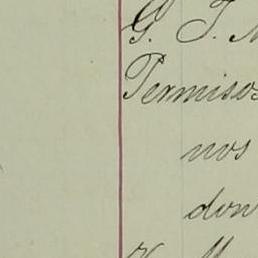 G. T.
Permisos
nos
don